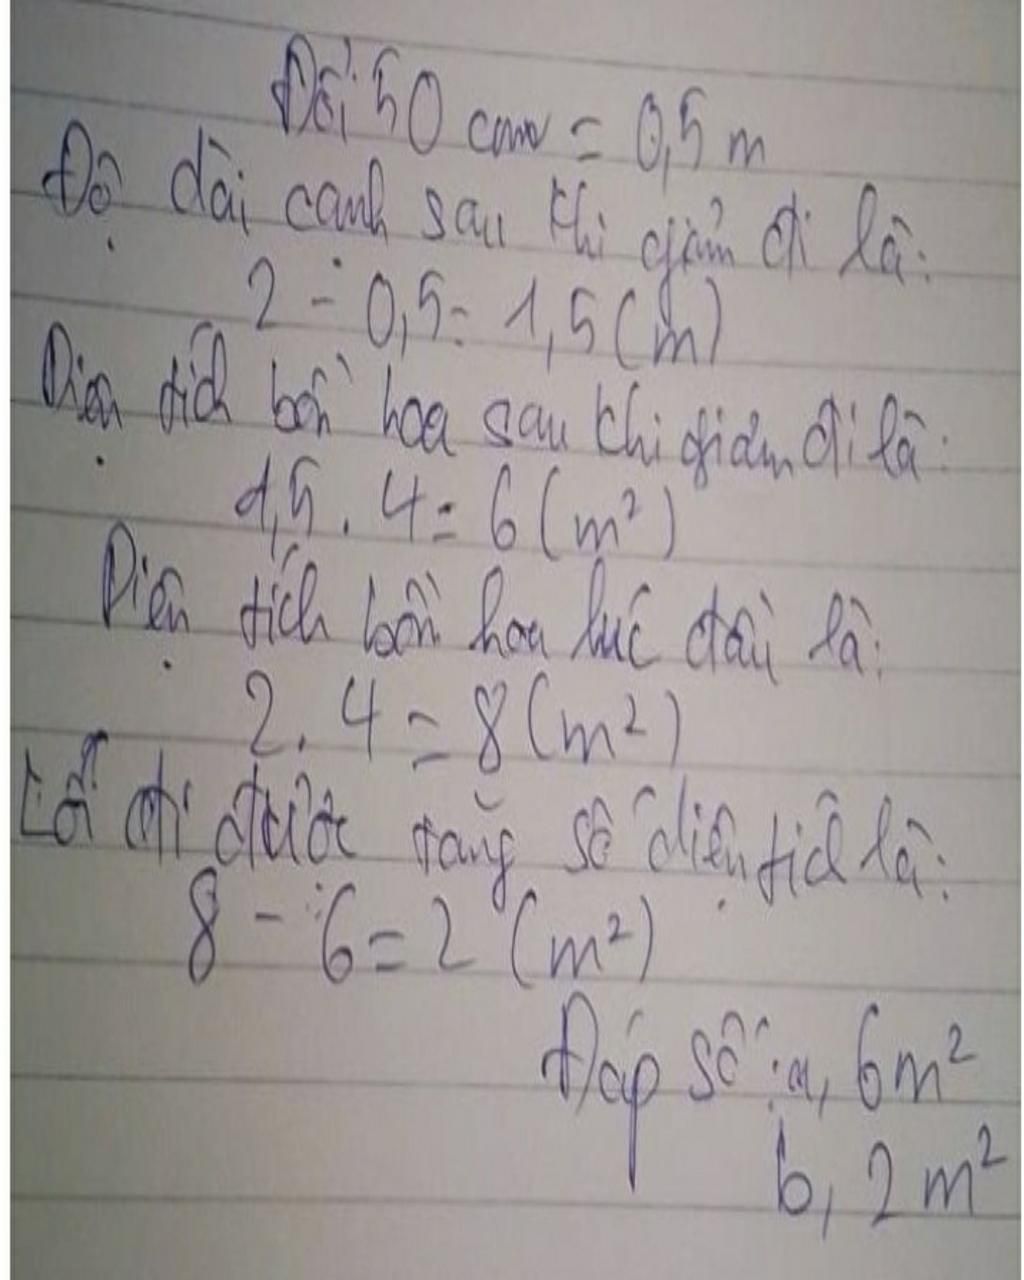 Đổi 50 cm = 0,5 m
Độ dài cạnh sau khi giảm đi là:
2 - 0,5 = 1,5 (m)
Diện tích bồn hoa sau khi giảm đi là:
1,5 . 4 = 6 (m²)
Diện tích bồn hoa lúc đầu là:
2 . 4 = 8 (m²)
Lối đi được tăng số diện tích là:
8 - 6 = 2 (m²)
Đáp số: a, 6 m²
b, 2 m²